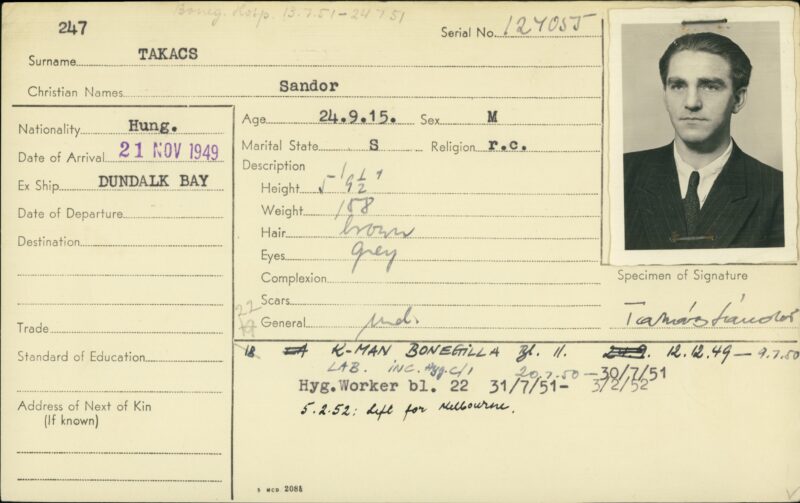 Boneg. Hosp. 13.7.51-24.7.51
247
Serial No. 127055
Surname TAKACS
Christian Names Sandor
Nationality Hung.
Date of Arrival 21 NOV 1949
Ex Ship DUNDALK BAY
Date of Departure
Destination
Trade
Standard of Education
Address of Next of Kin
(If known)
Age 24.9.15. Sex M
Marital State S Religion r.c.
Description
Height 5' 9½"
Weight 158
Hair brown
Eyes grey
Complexion
Scars
General med.
Specimen of Signature
Takács Sándor
18 K-MAN BONEGILLA Bl. 11. 12.12.49 - 9.7.50
LAB. INC. Hyg. C/1 20.7.50 - 30/7/51
Hyg.Worker bl. 22 31/7/51- 3/2/52
5.2.52: Left for Melbourne.
5 MCD 2085